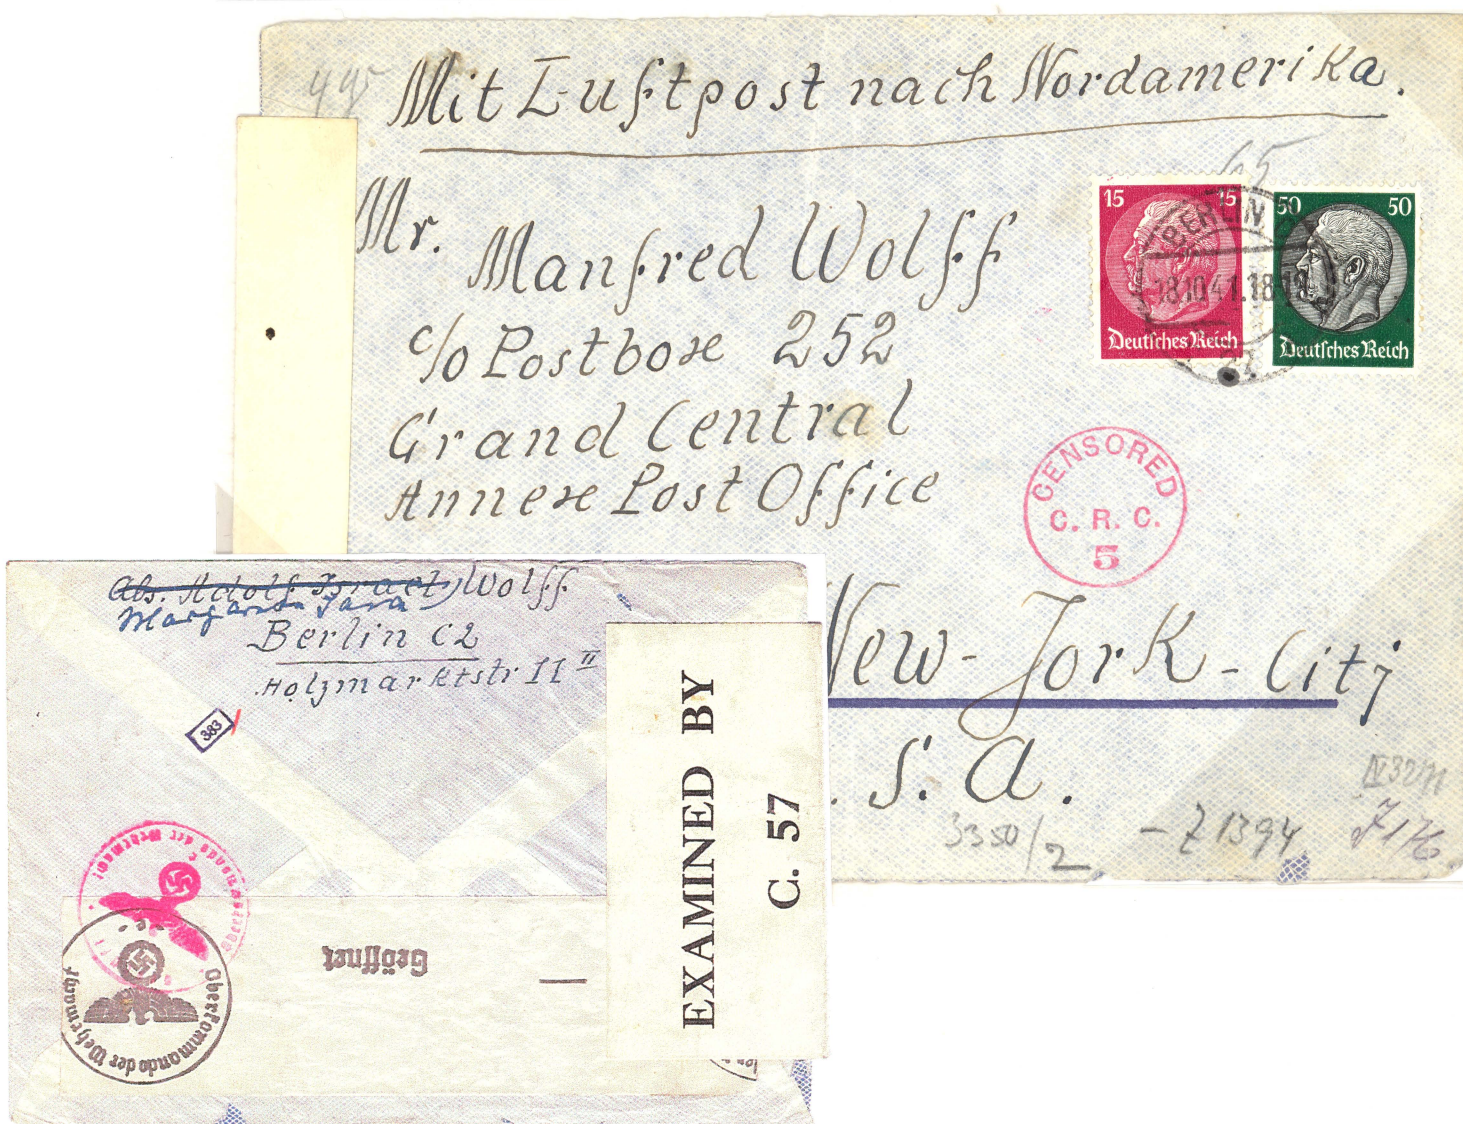 Mit Luftpost nach Nordamerika.
65
Mr. Manfred Wolff
c/o Postboxe 252
Grand Central
Annexe Post Office
New-York-City
. S. A.
15 15
Deutsches Reich
50 50
Deutsches Reich
BERLIN
18.10.41.18
CENSORED
C. R. C.
5
3350/2
- Z1394
Abs. Adolf Israel Wolff
Margarete Sara
Berlin C2
Holzmarktstr 11 II
383
EXAMINED BY
C. 57
Geöffnet
Oberkommando der Wehrmacht
Oberkommando der Wehrmacht